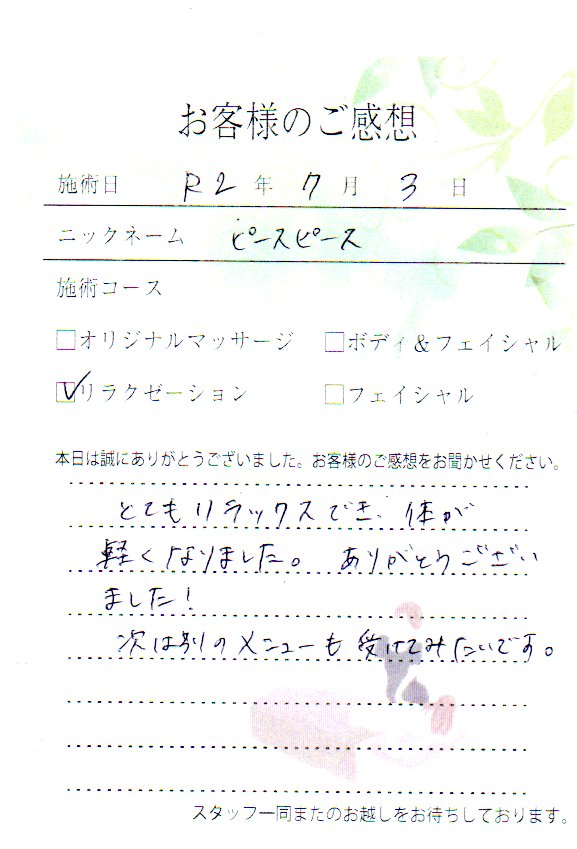 お客様のご感想
施術日 R2年 7月 3日
ニックネーム ピースピース
施術コース
□オリジナルマッサージ □ボディ＆フェイシャル
☑リラクゼーション □フェイシャル
本日は誠にありがとうございました。お客様のご感想をお聞かせください。
とてもリラックスでき、体が
軽くなりました。 ありがとうござい
ました！
次は別のメニューも受けてみたいです。
スタッフ一同またのお越しをお待ちしております。